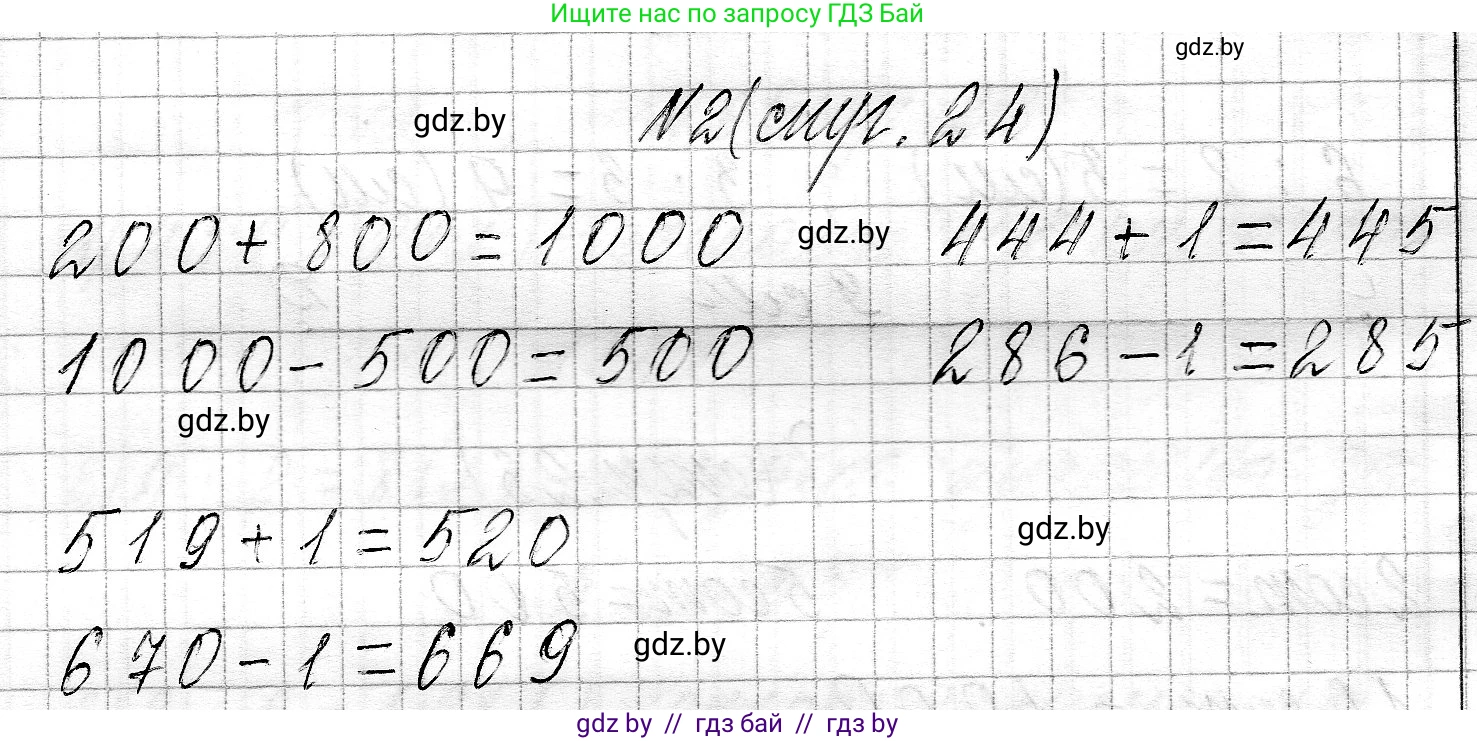 Ищите нас по запросу ГДЗ Бай
gdz.by
gdz.by
№2(стр. 24)
200+800=1000 gdz.by 444+1=445
1000-500=500 286-1=285
gdz.by
519+1=520 gdz.by
670-1=669 gdz.by
gdz by // гдз бай // гдз by